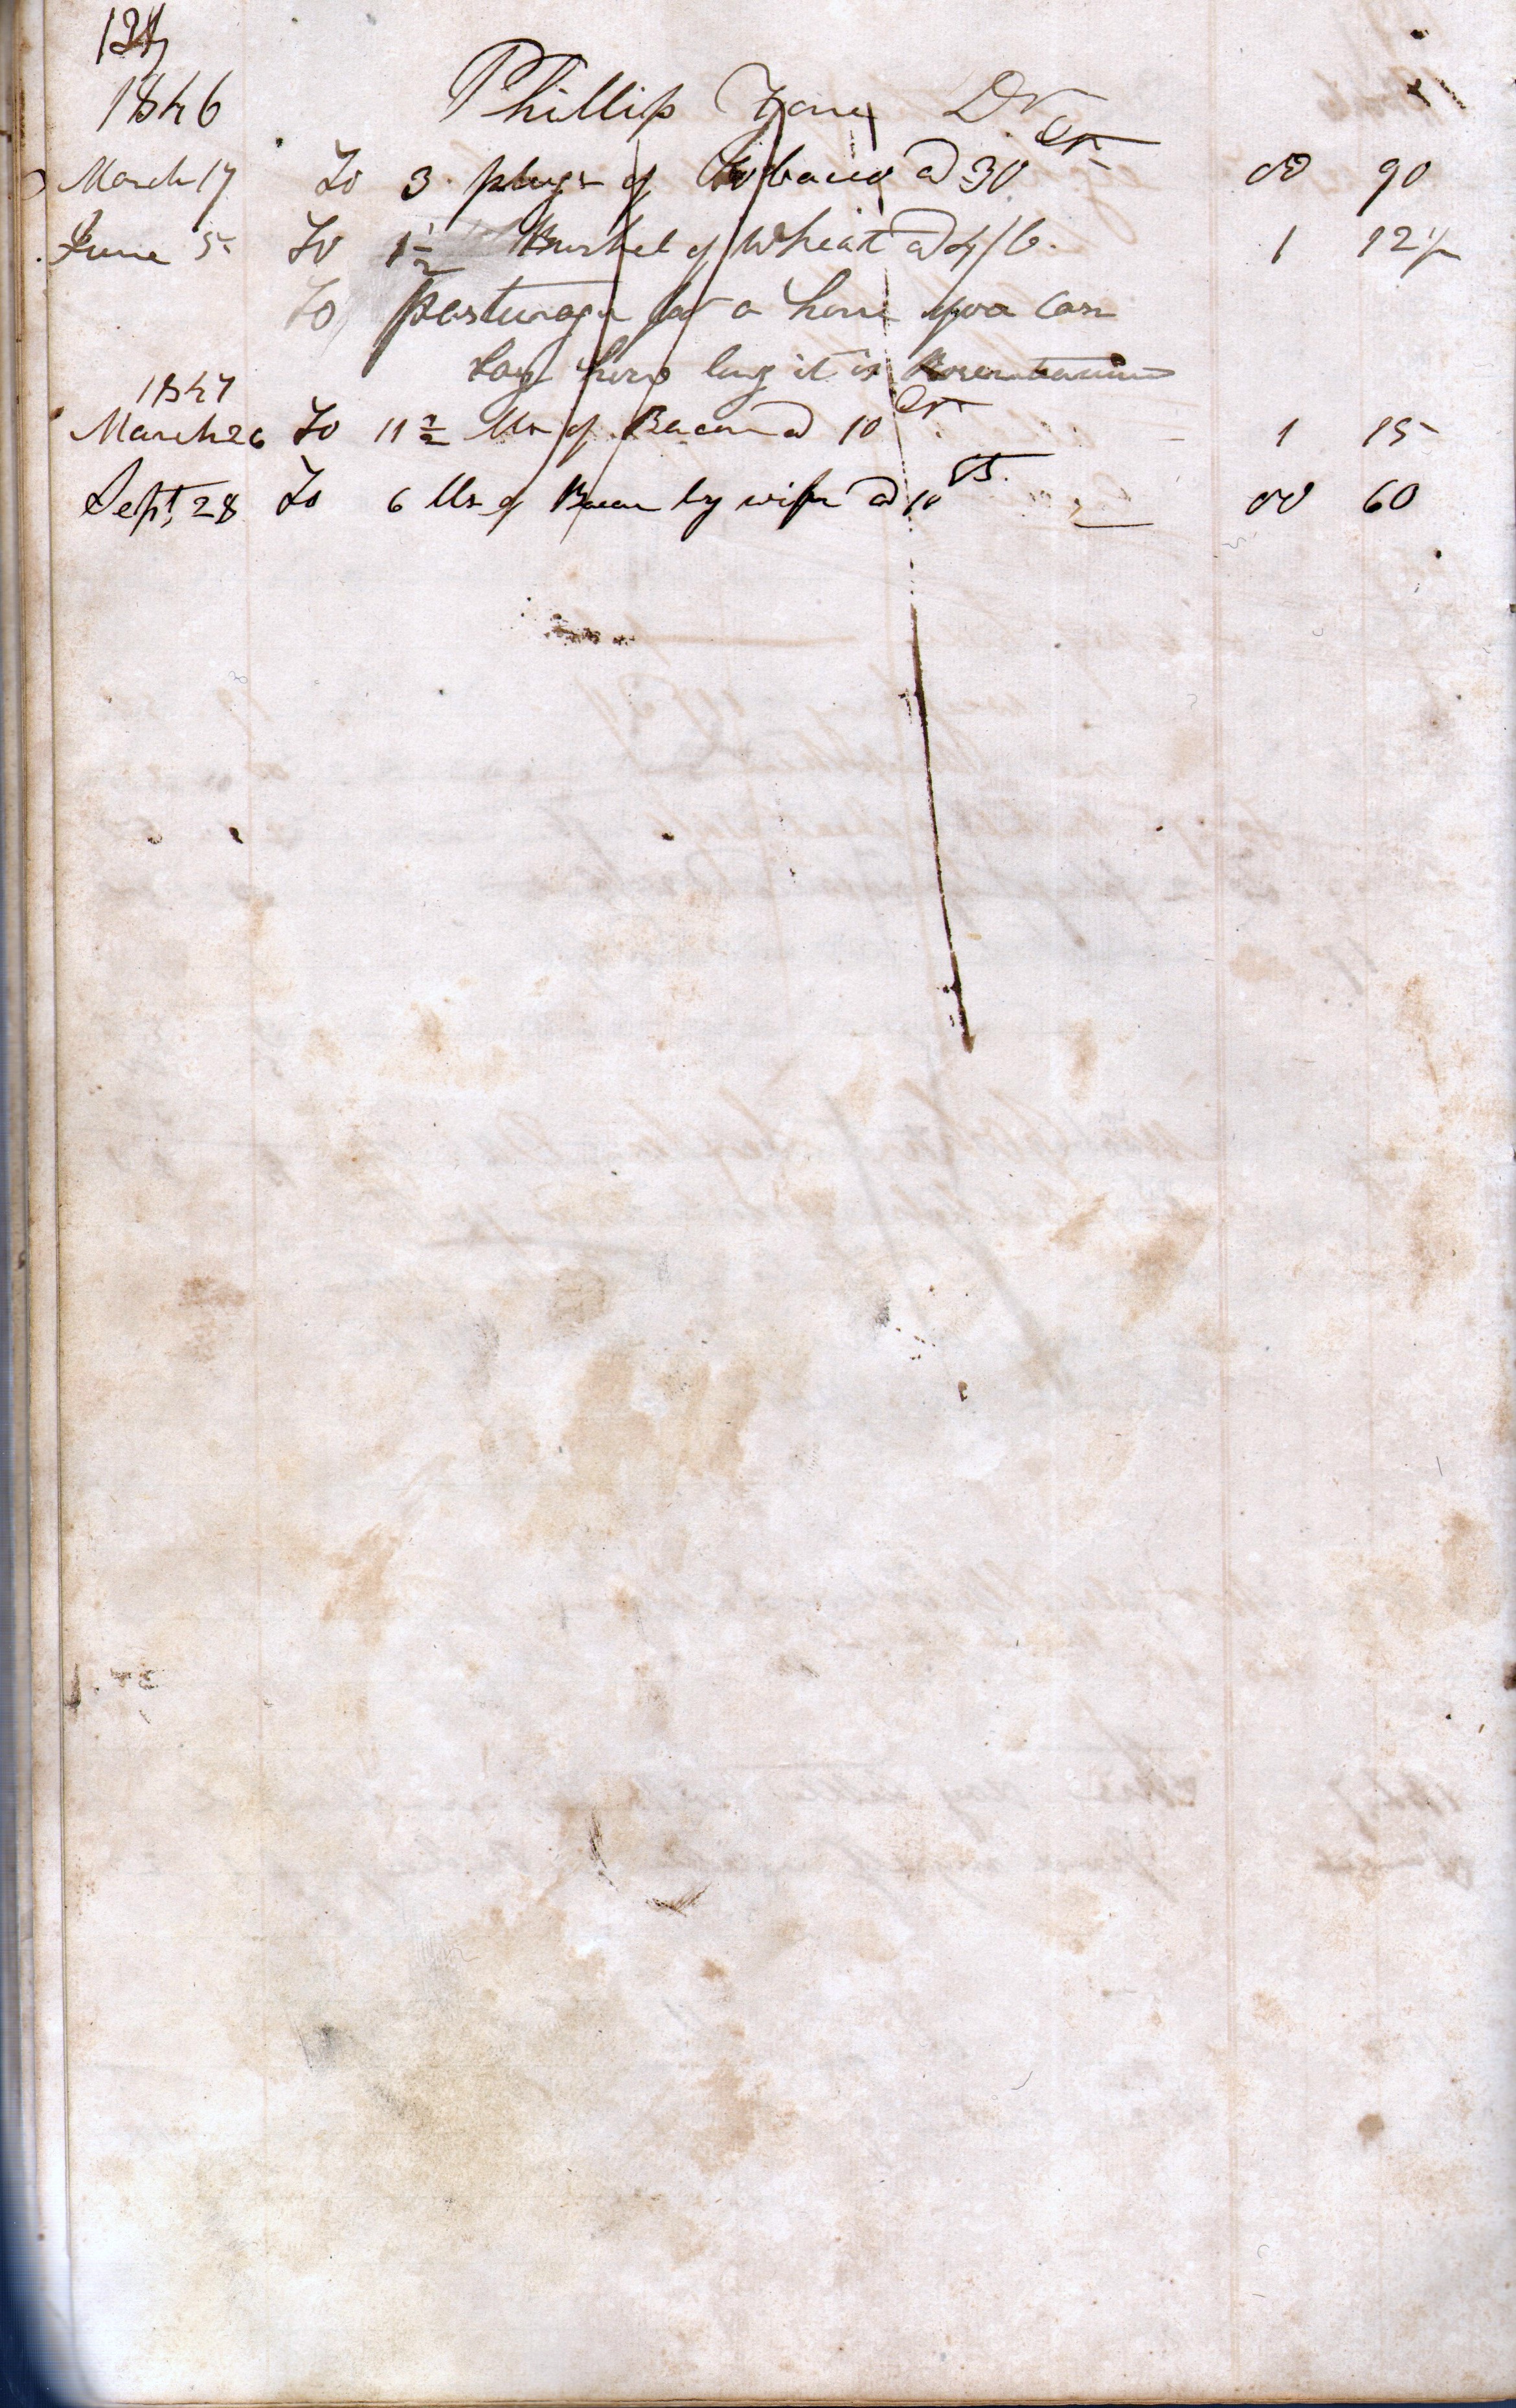 134
1846 Phillip Zane Dr
March 17 To 3 plugs of Tobacco @ 30 cts 00 90
June 5 To 1 1/2 Bushel of Wheat @ 4/6 1 12 1/2
To pasturage for a horse you can
say how long it is
1847
March 26 To 11 1/2 lbs of Bacon @ 10 cts 1 15
Sept, 28 To 6 lbs of Bacon by wife @ 10 cts 00 60